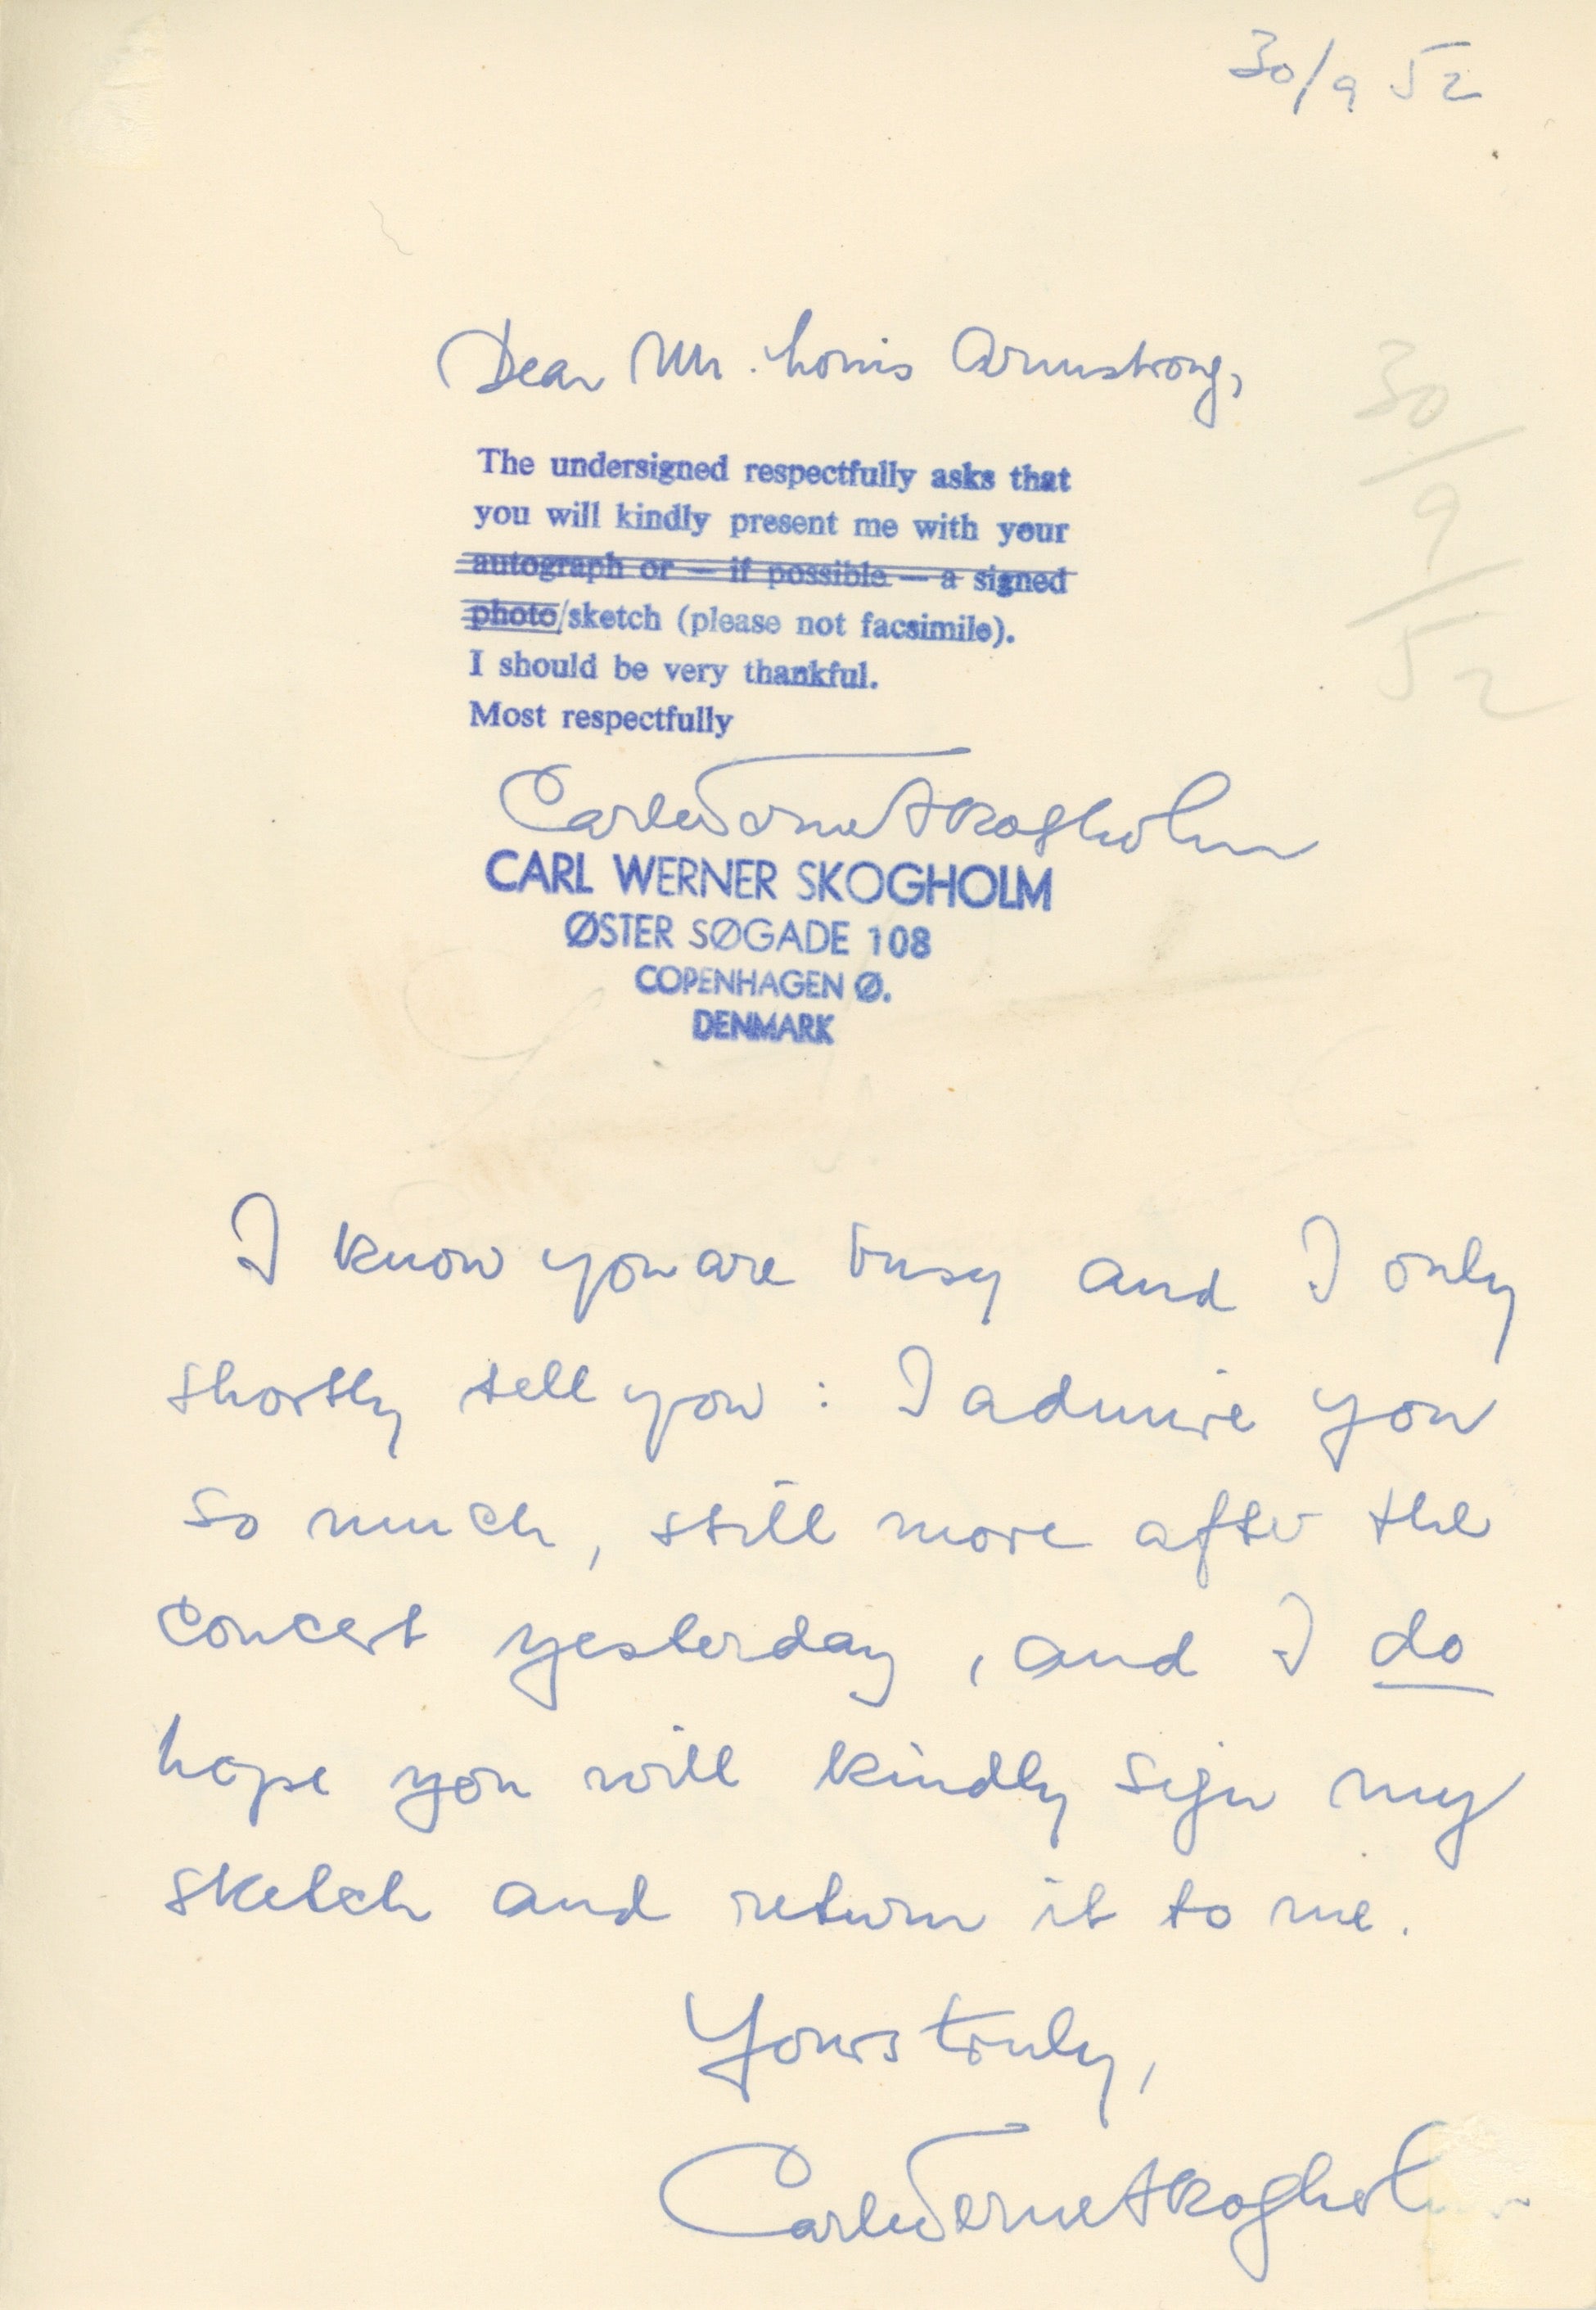 30/9 52
Dear Mr. Louis Armstrong,
30/9/52
The undersigned respectfully asks that
you will kindly present me with your
autograph or — if possible — a signed
photo/sketch (please not facsimile).
I should be very thankful.
Most respectfully
Carl Werner Skogholm
CARL WERNER SKOGHOLM
ØSTER SØGADE 108
COPENHAGEN Ø.
DENMARK
I know you are busy and I only
shortly tell you : I admire you
so much, still more after the
concert yesterday, and I do
hope you will kindly sign my
sketch and return it to me.
Yours truly,
Carl Werner Skogholm